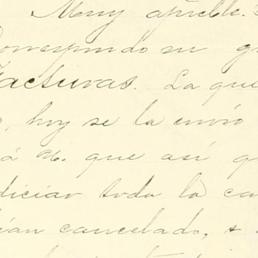 Muy apreble.
Correspondo su g
Facturas. La que
, hoy se la envió
á U. que así q
diciar toda la ca
ían cancelado, &